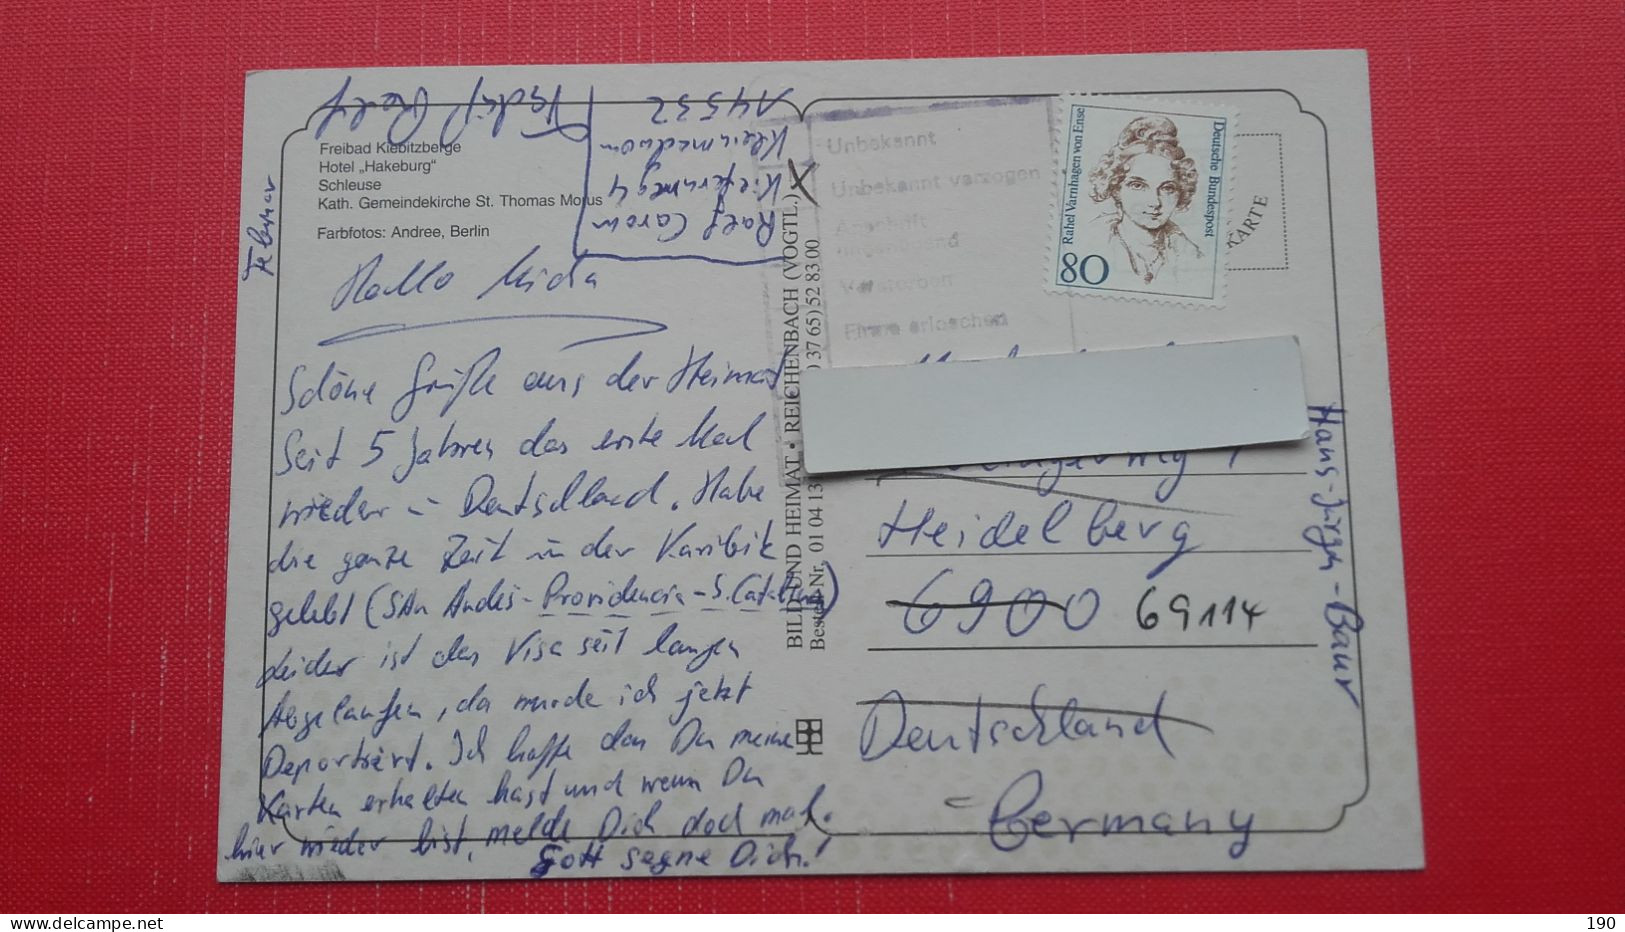 Freibad Kiebitzberge
Hotel „Hakeburg"
Schleuse
Kath. Gemeindekirche St. Thomas Morus
Farbfotos: Andree, Berlin
Ralf Carow
Kieferweg 4
Kleinmachnow
14532
Hallo
Schöne Grüße aus der Heimat
Seit 5 Jahren das erste Mal
wieder in Deutschland. Habe
die ganze Zeit in der Karibik
gelebt (SAn Andes - Providencia - S. Catalina)
Leider ist das Visa seit langem
Abgelaufen, da wurde ich jetzt
Deportiert. Ich hoffe das Du meine
Karten erhalten hast und wenn Du
hier wieder bist, melde Dich doch mal.
Gott segne Dich!
BILD UND HEIMAT • REICHENBACH (VOGTL.)
Bestell-Nr. 01 04 13 37 65) 52 83 00
Unbekannt
Unbekannt verzogen
Anschrift
ungenügend
Verstorben
Firma erloschen
Deutsche Bundespost
Rahel Varnhagen von Ense
80
KARTE
Heidelberg
6900 69114
Deutschland
= Germany
Hans-Jürgen-Baur
190